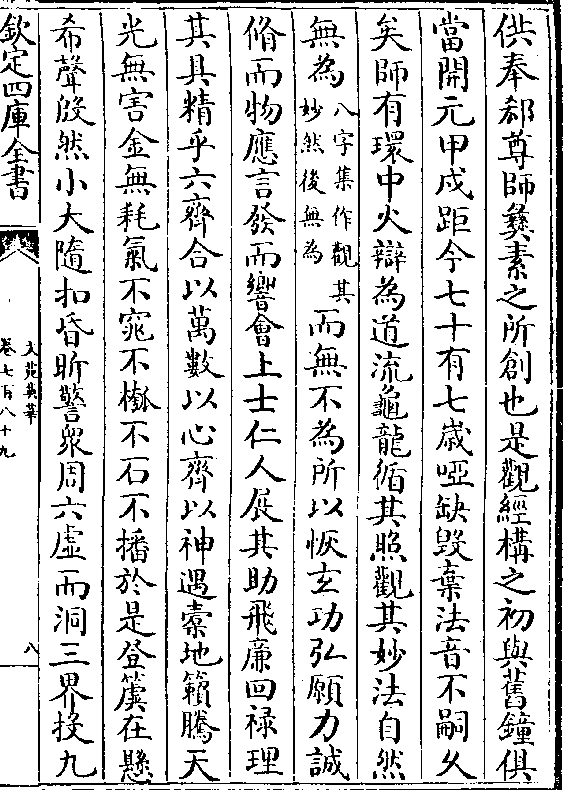 供奉郗尊師彝素之所創也是觀經構之初與舊鐘俱
當開元甲戍距今七十有七歲啞缺毁棄法音不嗣久
矣師有環中火辯為道流龜龍循其照觀其妙法自然
無為八字集作觀其妙然後無為而無不為所以恢玄功弘願力誠
脩而物應言發而響會上士仁人展其助飛廉回祿理
其具精乎六齊合以萬數以心齊以神遇橐地籟騰天
光無害金無耗氣不窕不槬不石不播於是登簴在懸
希聲殷然小大隨扣昏昕警衆周六虛而洞三界掞九
欽定四庫全書
文苑英華
卷七百八十九
八